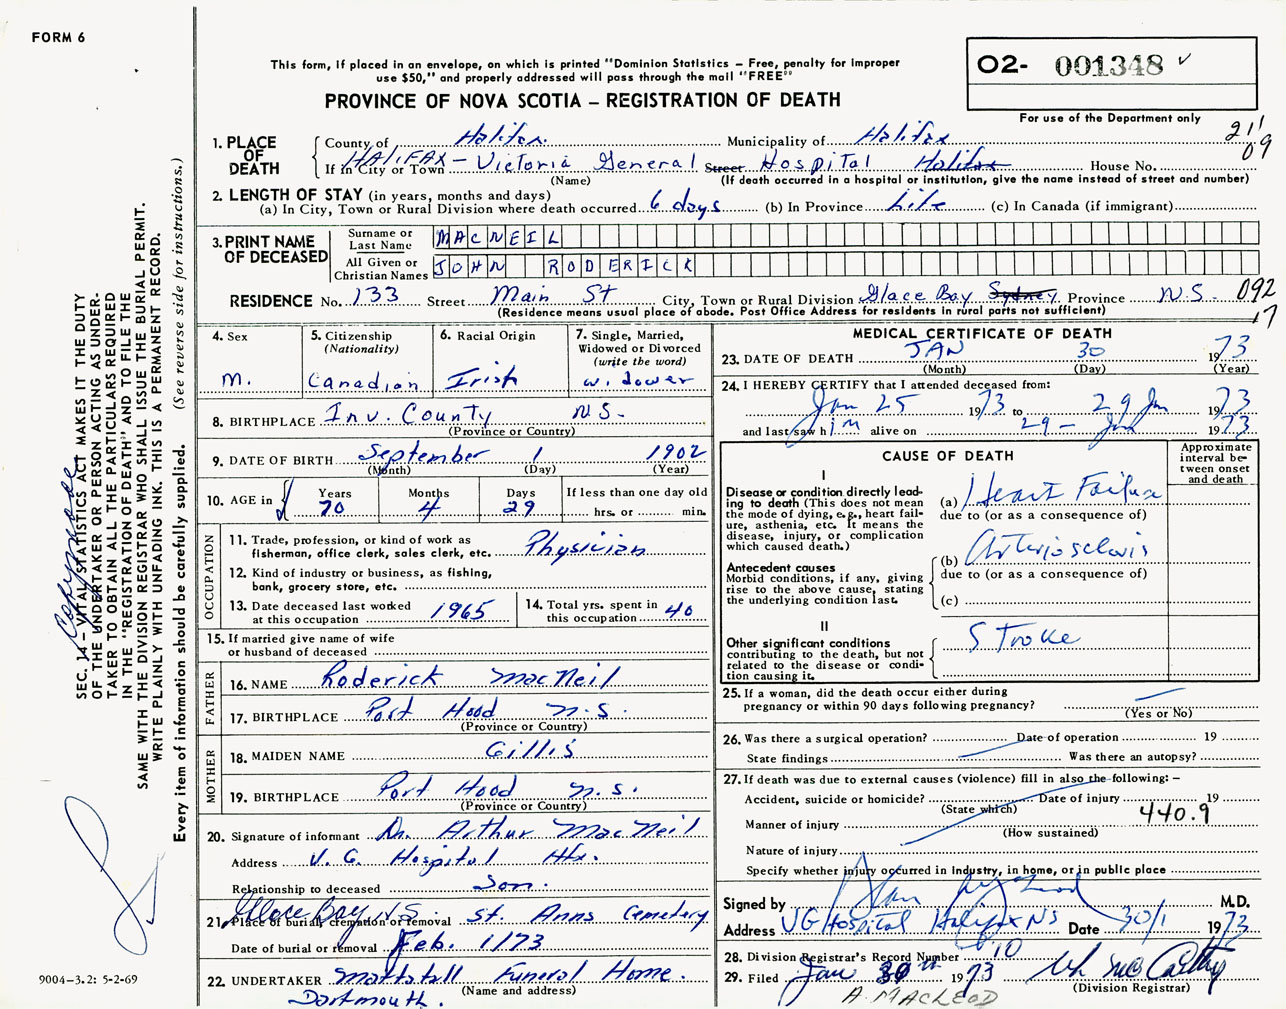 FORM 6
This form, if placed in an envelope, on which is printed "Dominion Statistics – Free, penalty for improper
use $50," and properly addressed will pass through the mail "FREE"
PROVINCE OF NOVA SCOTIA – REGISTRATION OF DEATH
O2- 001348 ✓
For use of the Department only
211
09
1. PLACE OF DEATH
County of Halifax. Municipality of Halifax
If in City or Town HALIFAX – Victoria General Street Hospital Halifax House No.
(Name) (If death occurred in a hospital or institution, give the name instead of street and number)
2. LENGTH OF STAY (in years, months and days)
(a) In City, Town or Rural Division where death occurred 6 days (b) In Province Life (c) In Canada (if immigrant)
3. PRINT NAME OF DECEASED
Surname or Last Name MACNEIL
All Given or Christian Names JOHN RODERICK
RESIDENCE No. 133 Street Main St City, Town or Rural Division Glace Bay Sydney Province N.S. 092
17
(Residence means usual place of abode. Post Office Address for residents in rural parts not sufficient)
4. Sex
M.
5. Citizenship
(Nationality)
Canadian
6. Racial Origin
Irish
7. Single, Married,
Widowed or Divorced
(write the word)
widower
8. BIRTHPLACE Inv. County N.S.
(Province or Country)
9. DATE OF BIRTH September 1 1902
(Month) (Day) (Year)
10. AGE in
Years 70
Months 4
Days 29
If less than one day old
hrs. or min.
OCCUPATION
11. Trade, profession, or kind of work as
fisherman, office clerk, sales clerk, etc. Physician
12. Kind of industry or business, as fishing,
bank, grocery store, etc.
13. Date deceased last worked
at this occupation 1965
14. Total yrs. spent in
this occupation 40
15. If married give name of wife
or husband of deceased
FATHER
16. NAME Roderick MacNeil
17. BIRTHPLACE Port Hood N.S.
(Province or Country)
MOTHER
18. MAIDEN NAME Gillis
19. BIRTHPLACE Port Hood N.S.
(Province or Country)
20. Signature of informant Dr. Arthur MacNeil
Address V. G. Hospital Hfx.
Relationship to deceased Son.
Glace Bay N.S
21. Place of burial, cremation or removal St. Anns Cemetery
Date of burial or removal Feb. 1/73
22. UNDERTAKER Mattatall Funeral Home.
(Name and address)
Dartmouth.
MEDICAL CERTIFICATE OF DEATH
23. DATE OF DEATH JAN 30 1973
(Month) (Day) (Year)
24. I HEREBY CERTIFY that I attended deceased from:
Jan 25 1973 to 29 Jan 1973
and last saw him alive on 29 – Jan 1973
CAUSE OF DEATH
Approximate
interval be-
tween onset
and death
I
Disease or condition directly lead-
ing to death (This does not mean
the mode of dying, e.g., heart fail-
ure, asthenia, etc. It means the
disease, injury, or complication
which caused death.)
(a) Heart Failure
due to (or as a consequence of)
Antecedent causes
Morbid conditions, if any, giving
rise to the above cause, stating
the underlying condition last.
(b)
due to (or as a consequence of)
(c)
II
Other significant conditions
contributing to the death, but not
related to the disease or condi-
tion causing it.
Stroke
25. If a woman, did the death occur either during
pregnancy or within 90 days following pregnancy? —
(Yes or No)
26. Was there a surgical operation? Date of operation 19
State findings Was there an autopsy?
27. If death was due to external causes (violence) fill in also the following: –
Accident, suicide or homicide? Date of injury 19
(State which)
440.9
Manner of injury
(How sustained)
Nature of injury
Specify whether injury occurred in industry, in home, or in public place
Signed by M.D.
Address VG Hospital Halifax NS Date 30/1 1973
28. Division Registrar's Record Number
29. Filed Jan 30th 1973
(Division Registrar)
A. MACLEOD
SEC. 14 – VITAL STATISTICS ACT MAKES IT THE DUTY
OF THE UNDERTAKER OR PERSON ACTING AS UNDER-
TAKER TO OBTAIN ALL THE PARTICULARS REQUIRED
IN THE "REGISTRATION OF DEATH" AND TO FILE THE
SAME WITH THE DIVISION REGISTRAR WHO SHALL ISSUE THE BURIAL PERMIT.
WRITE PLAINLY WITH UNFADING INK. THIS IS A PERMANENT RECORD.
Every item of information should be carefully supplied. (See reverse side for instructions.)
9004–3.2: 5-2-69